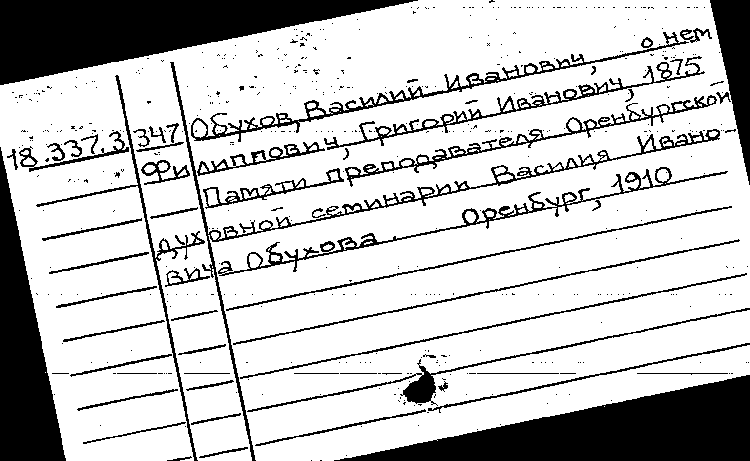 18.337.3 347 Обухов, Василий Иванович, о нем
Филиппович, Григорий Иванович, 1875
Памяти преподавателя Оренбургской
духовной семинарии Василия Ивано-
вича Обухова. Оренбург, 1910